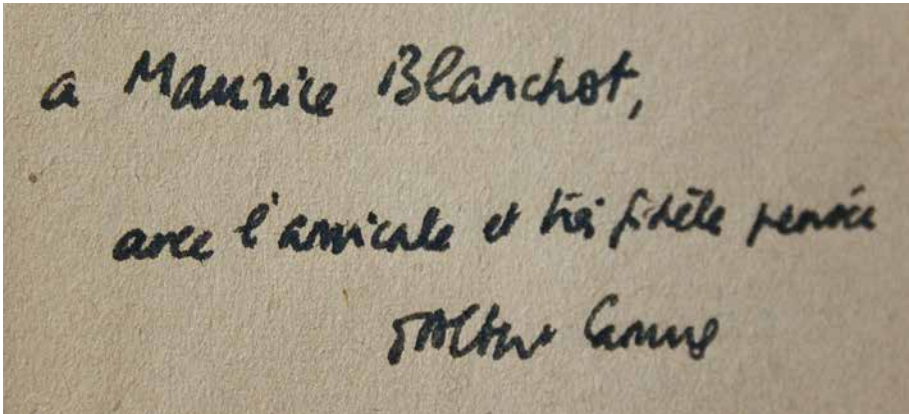 a Maurice Blanchot,
avec l'amicale et très fidèle pensée
d'Albert Camus